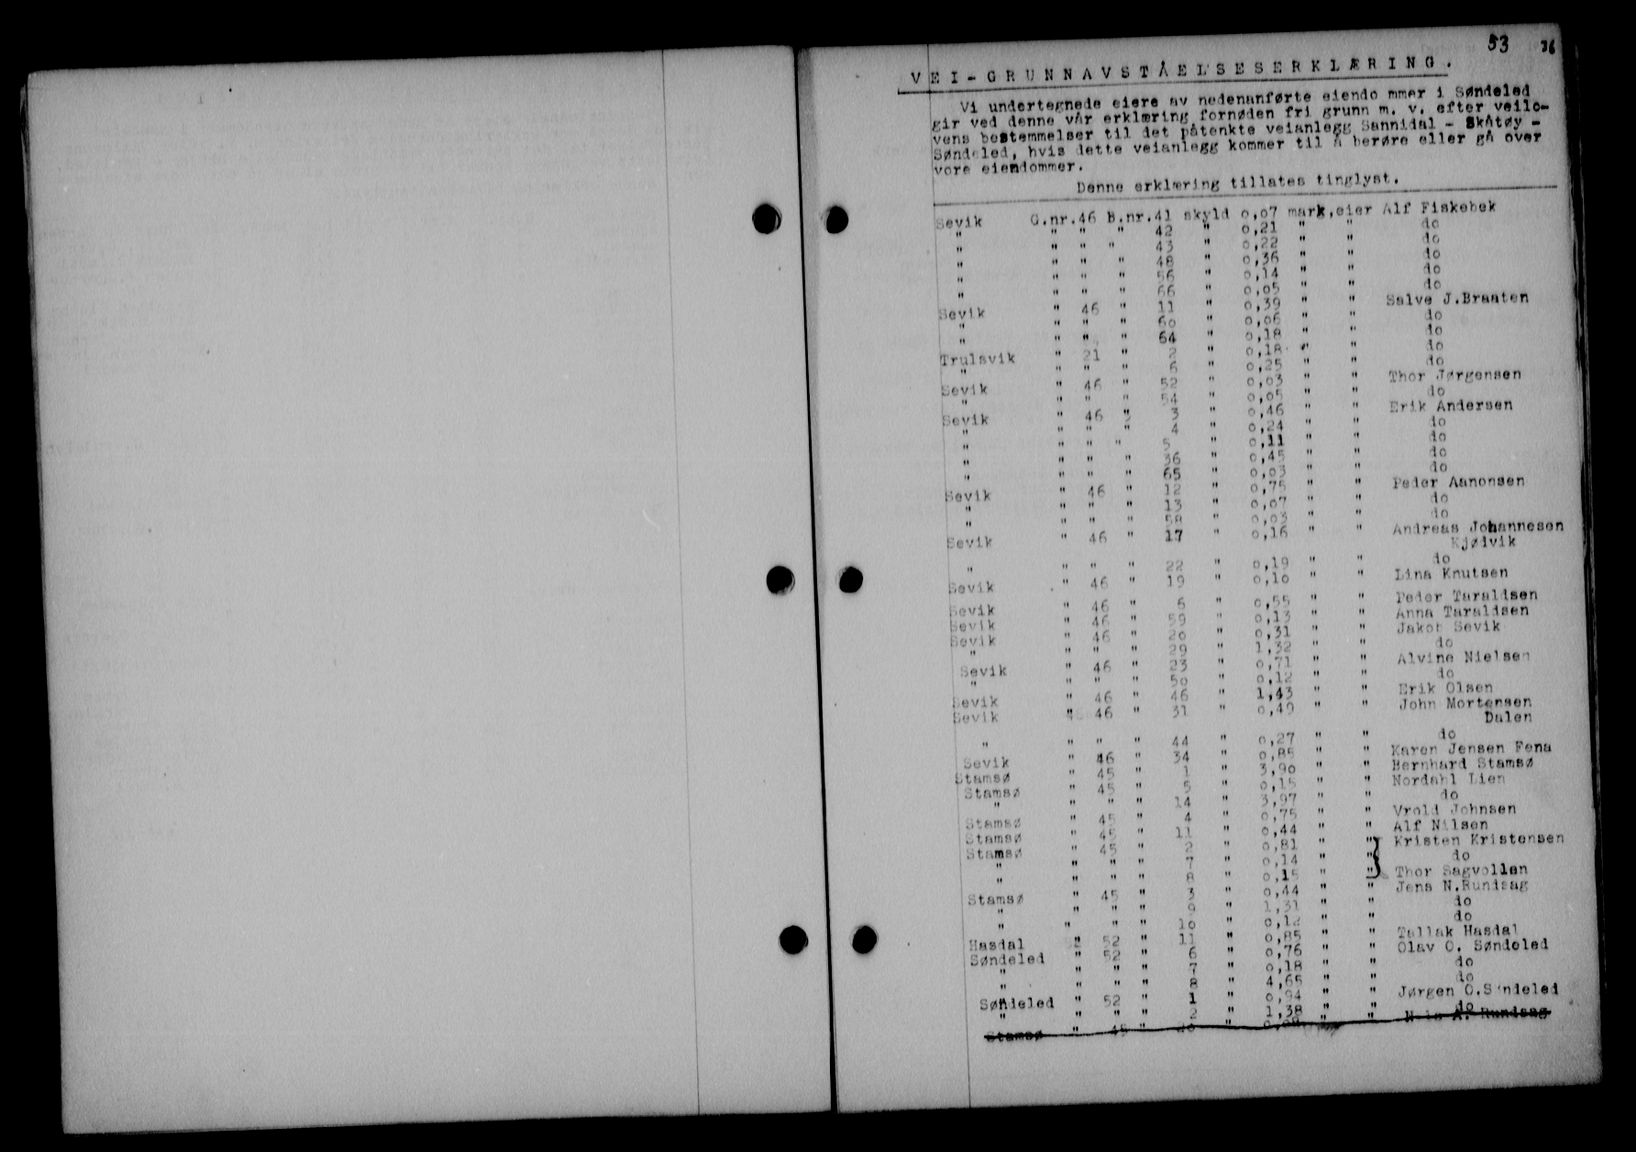 53 76
VEI-GRUNNAVSTÅELSESERKLÆRING.
Vi undertegnede eiere av nedenanførte eiendo mmer i Søndeled
gir ved denne vår erklæring fornøden fri grunn m. v. efter veilo-
vens bestemmelser til det påtenkte veianlegg Sannidal - Skåtøy -
Søndeled, hvis dette veianlegg kommer til å berøre eller gå over
vore eiendommer.
Denne erklæring tillates tinglyst.
Sevik G.nr.46 B.nr.41 skyld 0,07 mark,eier Alf Fiskebek
" " " " 42 " 0,21 " " do
" " " " 43 " 0,22 " " do
" " " " 48 " 0,36 " " do
" " " " 56 " 0,14 " " do
" " " " 66 " 0,05 " " do
Sevik " 46 " 11 " 0,39 " " Salve J.Braaten
" " " " 6o " 0,06 " " do
" " " " 64 " 0,18 " " do
Trulsvik " 21 " 2 " 0,18 " " do
" " " " 6 " 0,25 " " do
Sevik " 46 " 52 " 0,03 " " Thor Jørgensen
" " " " 54 " 0,05 " " do
Sevik " 46 " 3 " 0,46 " " Erik Andersen
" " " " 4 " 0,24 " " do
" " " " 5 " 0,11 " " do
" " " " 36 " 0,45 " " do
" " " " 65 " 0,03 " " do
Sevik " 46 " 12 " 0,75 " " Peder Aanonsen
" " " " 13 " 0,07 " " do
" " " " 58 " 0,03 " " do
Sevik " 46 " 17 " 0,16 " " Andreas Johannesen
Kjødvik
" " " " 22 " 0,19 " " do
Sevik " 46 " 19 " 0,1o " " Lina Knutsen
Sevik " 46 " 6 " 0,55 " " Peder Taraldsen
Sevik " 46 " 59 " 0,13 " " Anna Taraldsen
Sevik " 46 " 2o " 0,31 " " Jakob Sevik
" " " " 29 " 1,32 " " do
Sevik " 46 " 23 " 0,71 " " Alvine Nielsen
" " " " 5o " 0,12 " " do
Sevik " 46 " 46 " 1,43 " " Erik Olsen
Sevik " 46 " 31 " 0,49 " " John Mortensen
Dalen
" " " " 44 " 0,27 " " do
Sevik " 46 " 34 " 0,85 " " Karen Jensen Fena
Stamsø " 45 " 1 " 3,9o " " Bernhard Stamsø
Stamsø " 45 " 5 " 0,15 " " Nordahl Lien
" " " " 14 " 3,97 " " do
Stamsø " 45 " 4 " 0,75 " " Vrold Johnsen
Stamsø " 45 " 11 " 0,44 " " Alf Nilsen
Stamsø " 45 " 2 " 0,81 " " Kristen Kristensen
" " " " 7 " 0,14 " " do
" " " " 8 " 0,15 " " Thor Sagvollen
Stamsø " 45 " 3 " 0,44 " " Jens N.Rundsag
" " " " 9 " 1,31 " " do
" " " " 1o " 0,12 " " do
Hasdal " 52 " 11 " 0,85 " " Tallak Hasdal
Søndeled " 52 " 6 " 0,76 " " Olav O. Søndeled
" " " " 7 " 0,18 " " do
" " " " 8 " 4,65 " " do
Søndeled " 52 " 1 " 0,94 " " Jørgen O.Søndeled
" " " " 2 " 1,38 " " do
Stamsø " 45 " " " " A. Rundsag